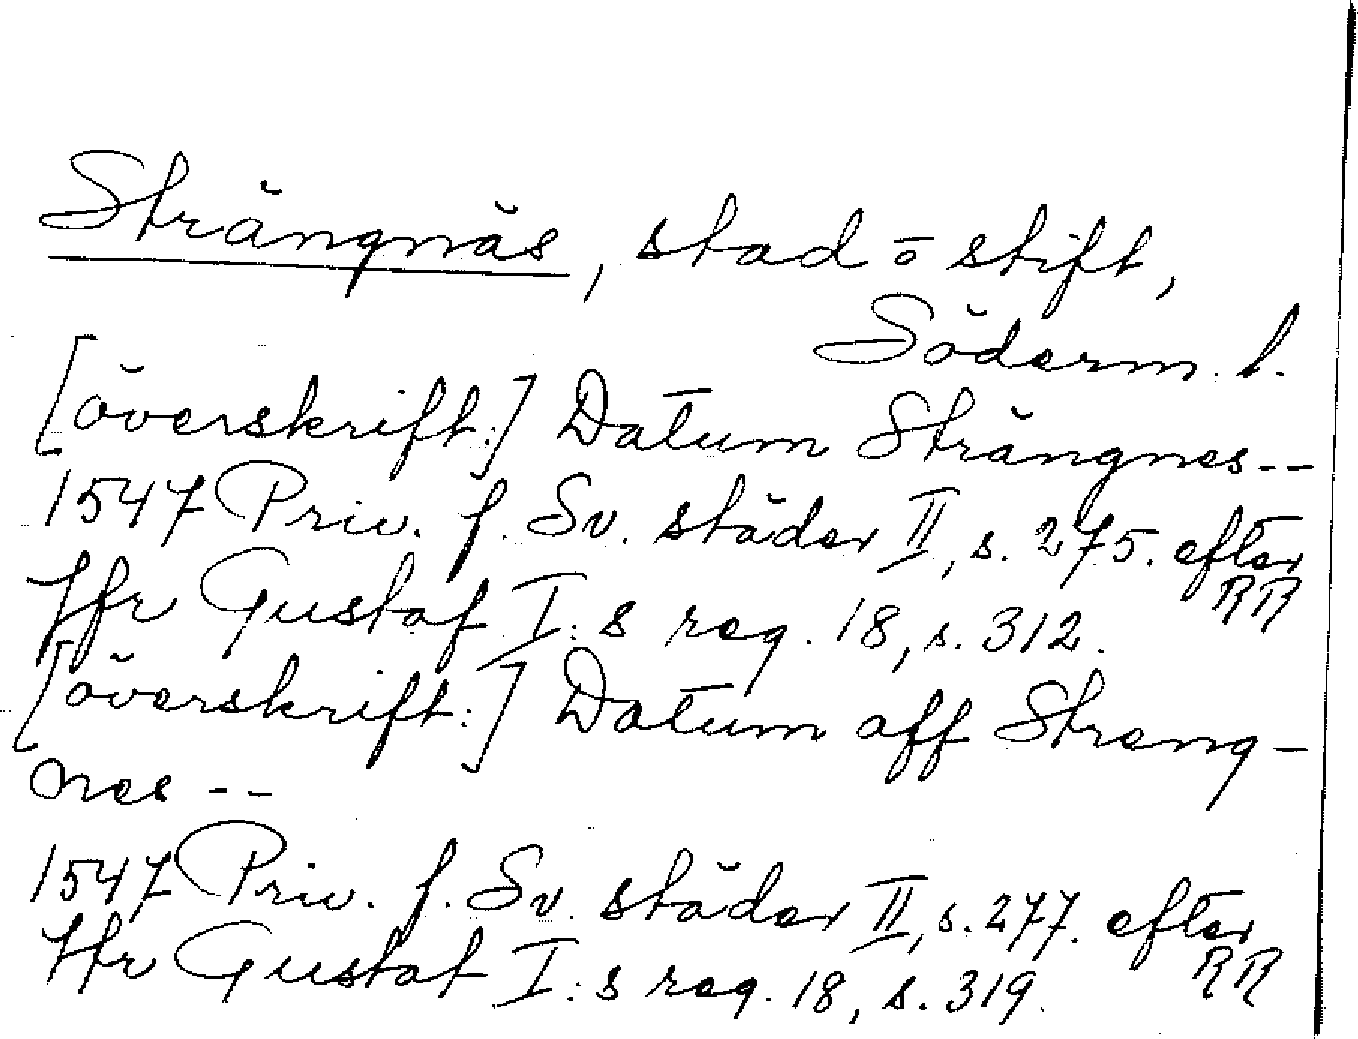 Strängnäs, stad o stift,
Söderm. l.
[överskrift:] Datum Strängnes--
1547 Priv. f. Sv. städer II, s. 275. efter RR
Jfr Gustaf I:s reg. 18, s. 312.
[överskrift:] Datum aff Streng-
nes --
1547 Priv. f. Sv. städer II, s. 277. efter RR
Jfr Gustaf I:s reg. 18, s. 319.